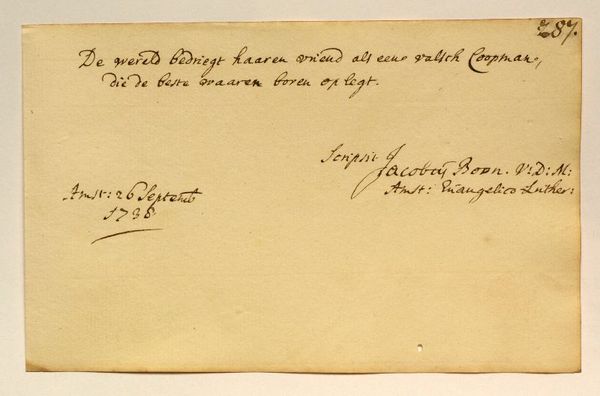 287.
De wereld bedriegt haaren vriend als een valsch Coopman,
die de beste waaren boven op legt.
Scripsit Jacobus Boon. V: D: M:
Amst: Euangelico Luther:
Amst: 26 Septemb
1738